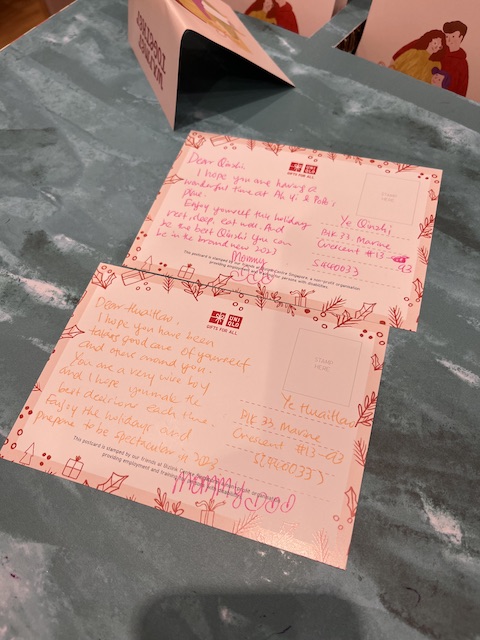 Dear Qinshi
I hope you are having a
wonderful time at Ah Yi &
place.
Enjoy yourself this holiday
rest, sleep, eat well. And
be the best Qinshi you can
be in the brand new 2023
Mommy
UNIQLO
GIFTS FOR ALL
STAMP
HERE
Ye Qinshi
Blk 33 Marine
Crescent #13-
93
S440033
This postcard is stamped by our friends at Centre Singapore, a non-profit organisation
providing employment and for persons with disabilities.
Dear Huaitao,
I hope you have been
taking good care of yourself
and others around you.
You are a very wise boy
and I hope you make the
best decisions each time.
Enjoy the holidays and
prepare to be spectacular in 2023
Mommy
UNIQLO
GIFTS FOR ALL
STAMP
HERE
Ye Huaitao
Blk 33 Marine
Crescent #13-93
S(440033)
This postcard is stamped by our friends at Centre
providing employment and training